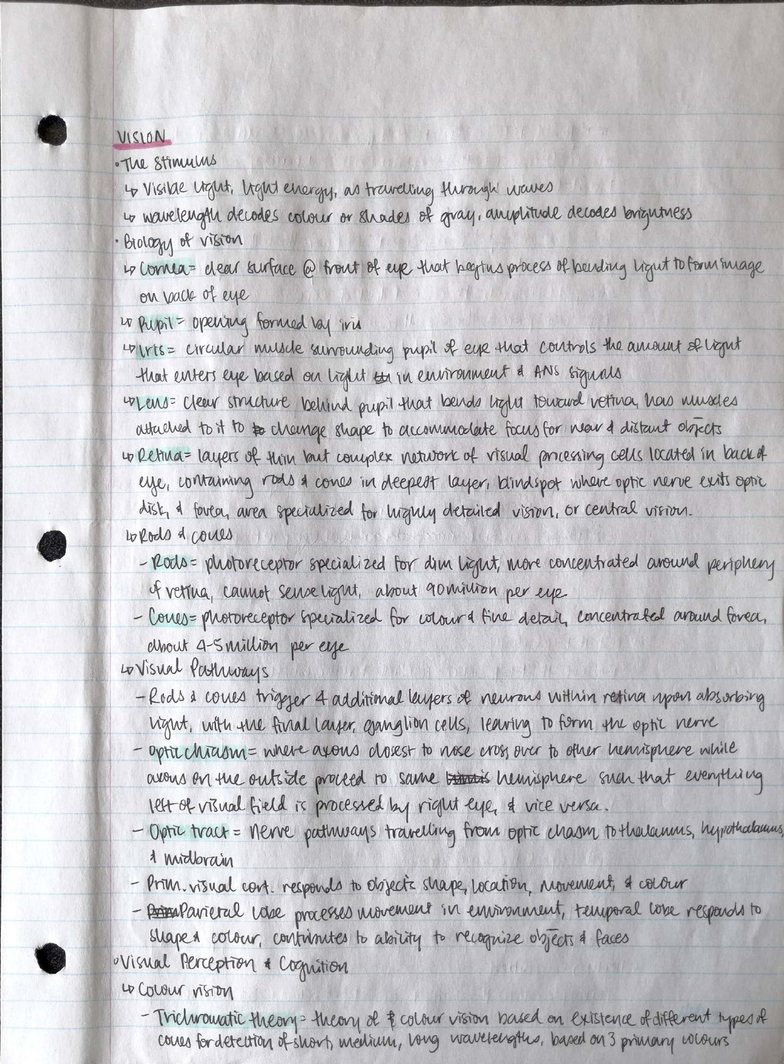 VISION
• The Stimulus
↳ Visible light, light energy, as travelling through waves
↳ wavelength decodes colour or shades of gray, amplitude decodes brightness
• Biology of vision
↳ Cornea = clear surface @ front of eye that begins process of bending light to form image
on back of eye
↳ Pupil = opening formed by iris
↳ Iris = circular muscle surrounding pupil of eye that controls the amount of light
that enters eye based on light in environment & ANS signals
↳ Lens = clear structure behind pupil that bends light toward retina, has muscles
attached to it to change shape to accommodate focus for near & distant objects
↳ Retina = layers of thin but complex network of visual processing cells located in back of
eye, containing rods & cones in deepest layer, blindspot where optic nerve exits optic
disk, & fovea, area specialized for highly detailed vision, or central vision.
↳ Rods & cones
- Rods = photoreceptor specialized for dim light, more concentrated around periphery
of retina, cannot sense light, about 90 million per eye
- Cones = photoreceptor specialized for colour & fine detail, concentrated around fovea,
about 4-5 million per eye
↳ Visual Pathways
- Rods & cones trigger 4 additional layers of neurons within retina upon absorbing
light, with the final layer, ganglion cells, leaving to form the optic nerve
- Optic chiasm = where axons closest to nose cross over to other hemisphere while
axons on the outside proceed to same hemisphere such that everything
left of visual field is processed by right eye, & vice versa.
- Optic tract = nerve pathways travelling from optic chasm to thalamus, hypothalamus,
& midbrain
- Prim. visual cort. responds to objects shape, location, movement, & colour
- Parietal lobe processes movement in environment, temporal lobe responds to
shape & colour, contributes to ability to recognize objects & faces
• Visual Perception & Cognition
↳ Colour vision
- Trichromatic theory = theory of colour vision based on existence of different types of
cones for detection of short, medium, long wavelengths, based on 3 primary colours